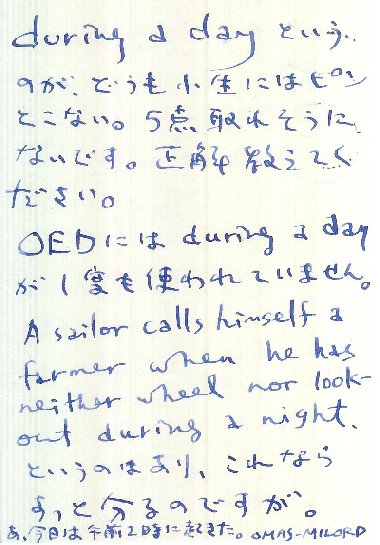 during a day という
のが、どうも小生にはピン
とこない。5点取れそうに
ないです。正解教えてく
ださい。
OEDには during a day
が1度も使われていません。
A sailor calls himself a
farmer when he has
neither wheel nor look-
out during a night.
というのはあり、これなら
すっと分るのですが。
あ、今日は午前2時に起きた。OMAS-MILORD